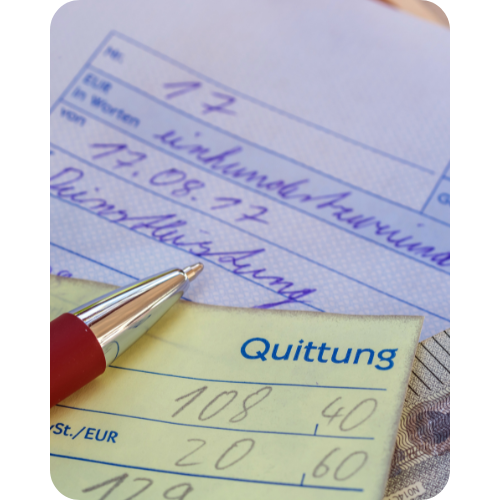 Nr. 17
EUR
in Worten einhundertzweiund
von 17.08.17
Dienstleistung
Quittung
108 40
St./EUR 20 60
129